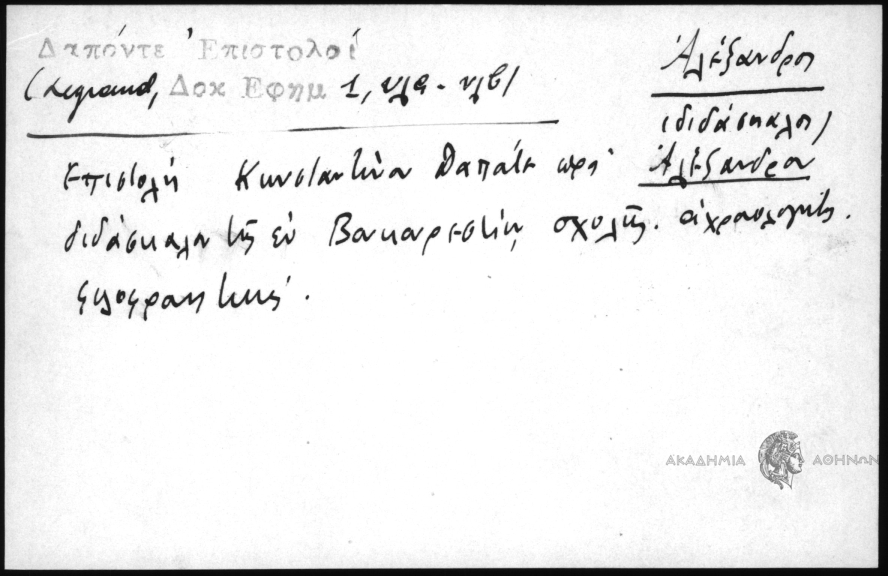 Δαπόντε Ἐπιστολαί
(Legrand, Δακ Εφημ 1, υλα - υλβ)
Ἀλέξανδρος
(διδάσκαλος)
Επιστολή Κωνσταντίνου Δαπόντε πρὸς Ἀλέξανδρον
διδάσκαλον τῆς ἐν Βουκουρεστίῳ σχολῆς. ἀχρονολόγητος.
φιλοφρονητική.
ΑΚΑΔΗΜΙΑ ΑΘΗΝΩΝ